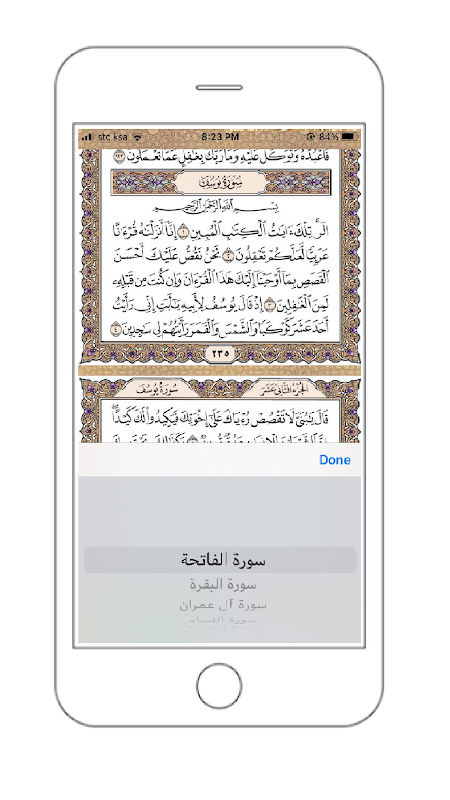 stc ksa 8:23 PM 84%
فَاعْبُدْهُ وَتَوَكَّلْ عَلَيْهِ وَمَا رَبُّكَ بِغَافِلٍ عَمَّا تَعْمَلُونَ ١٢٣
سُورَةُ يُوسُفَ
بِسْمِ اللَّهِ الرَّحْمَٰنِ الرَّحِيمِ
الٓر تِلْكَ ءَايَٰتُ ٱلْكِتَٰبِ ٱلْمُبِينِ ١ إِنَّآ أَنزَلْنَٰهُ قُرْءَٰنًا
عَرَبِيًّا لَّعَلَّكُمْ تَعْقِلُونَ ٢ نَحْنُ نَقُصُّ عَلَيْكَ أَحْسَنَ
ٱلْقَصَصِ بِمَآ أَوْحَيْنَآ إِلَيْكَ هَٰذَا ٱلْقُرْءَانَ وَإِن كُنتَ مِن قَبْلِهِۦ
لَمِنَ ٱلْغَٰفِلِينَ ٣ إِذْ قَالَ يُوسُفُ لِأَبِيهِ يَٰٓأَبَتِ إِنِّى رَأَيْتُ
أَحَدَ عَشَرَ كَوْكَبًا وَٱلشَّمْسَ وَٱلْقَمَرَ رَأَيْتُهُمْ لِى سَٰجِدِينَ ٤
٢٣٥
الجزء الثاني عشر سُورَةُ يُوسُفَ
قَالَ يَٰبُنَىَّ لَا تَقْصُصْ رُءْيَاكَ عَلَىٰٓ إِخْوَتِكَ فَيَكِيدُوا۟ لَكَ كَيْدًا
Done
سورة الفاتحة
سورة البقرة
سورة آل عمران
سورة النساء